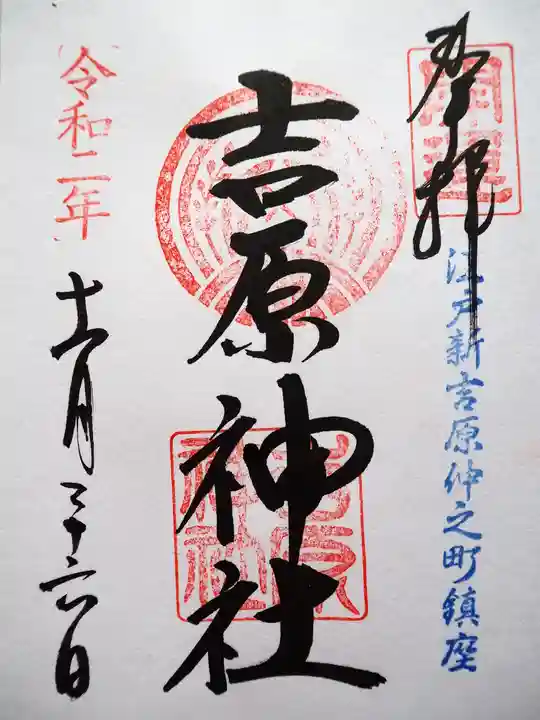 奉拝
開運
江戸新吉原仲之町鎮座
吉原神社
吉原神社
令和二年
十一月二十六日